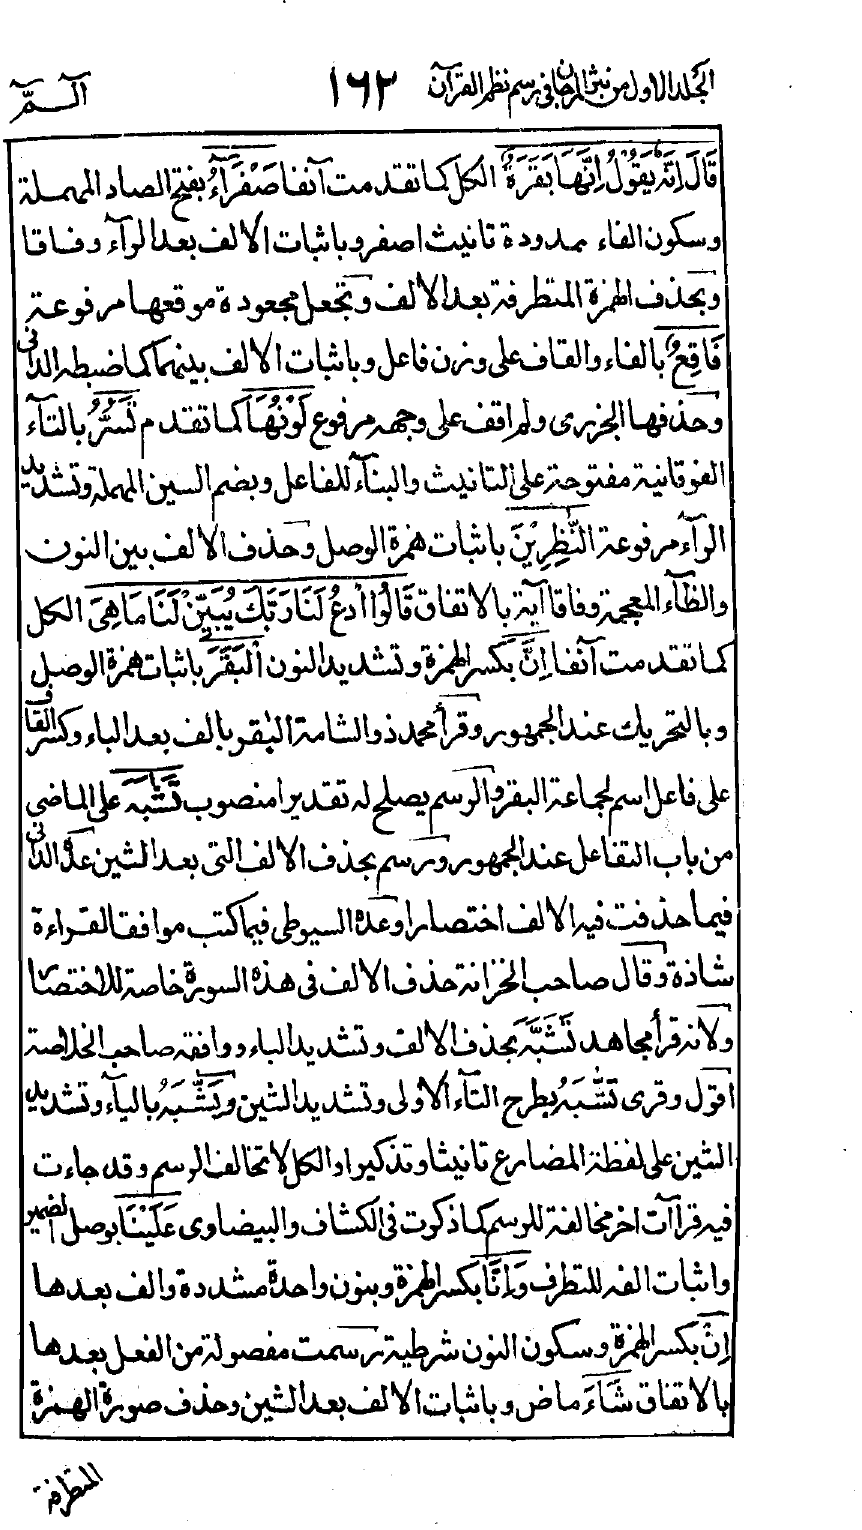 الجلد الاول من نثر المرجان في رسم نظم القرآن ١٦٢ آلــمّٓ
قَالَ اِنَّهٗ يَقُوْلُ اِنَّهَا بَقَرَةٌ الكل كما تقدمت آنفا صَفْرَآءُ بفتح الصاد المهملة
وسكون الفاء ممدودة تانيث اصفر وباثبات الالف بعد الرآء وفاقا
وبحذف الهمزة المتطرفة بعد الالف وتجعل مجعودة موقعها مرفوعة
فَاقِعٌ بالفاء والقاف على وزن فاعل وباثبات الالف بينهما كما ضبطه الدانى
وحذفها الجزرى ولم اقف على وجهه مرفوع لَوْنُهَا كما تقدم تَسُرُّ بالتآء
الفوقانية مفتوحة على التانيث والبنآء للفاعل وبضم السين المهملة وتشديد
الرآء مرفوعة النّٰظِرِيْنَ باثبات همزة الوصل وحذف الالف بين النون
والظآء المعجمة وفاقا آية بالاتفاق قَالُوا ادْعُ لَنَا رَبَّكَ يُبَيِّنْ لَنَا مَا هِىَ الكل
كما تقدمت آنفا اِنَّ بكسر الهمزة وتشديد النون الْبَقَرَ باثبات همزة الوصل
وبالتحريك عند الجمهور وقرأ محمد ذو الشامة الباقر بالف بعد الباء وكسر القاف
على فاعل اسم لجماعة البقر والرسم يصلح له تقديرا منصوب تَشٰبَهَ على الماضى
من باب التفاعل عند الجمهور ورسم بحذف الالف التى بعد الشين عدّه الدانى
فيما حذفت فيه الالف اختصارا وعدّه السيوطى فيما كتب موافقا لقراءة
شاذة وقال صاحب الخزانة حذف الالف فى هذه السورة خاصة للاختصار
ولانه قرأ مجاهد تَشَبَّهَ بحذف الالف وتشديد الباء ووافقه صاحب الخلاصة
اقول وقرى تَشَّبَهُ بطرح التآء الاولى وتشديد الشين ويَشَّبَهُ باليآء وتشديد
الشين على لفظة المضارع تانيثا وتذكيرا والكل لا تخالف الرسم وقد جاءت
فيه قراآت اخر مخالفة للرسم كما ذكرت فى الكشاف والبيضاوى عَلَيْنَا بوصل الضمير
واثبات الفه للتطرف وَاِنَّا بكسر الهمزة وبنون واحدة مشددة والف بعدها
اِنْ بكسر الهمزة وسكون النون شرطية رسمت مفصولة من الفعل بعدها
بالاتفاق شَآءَ ماض وباثبات الالف بعد الشين وحذف صورة الهمزة
المتطرفة